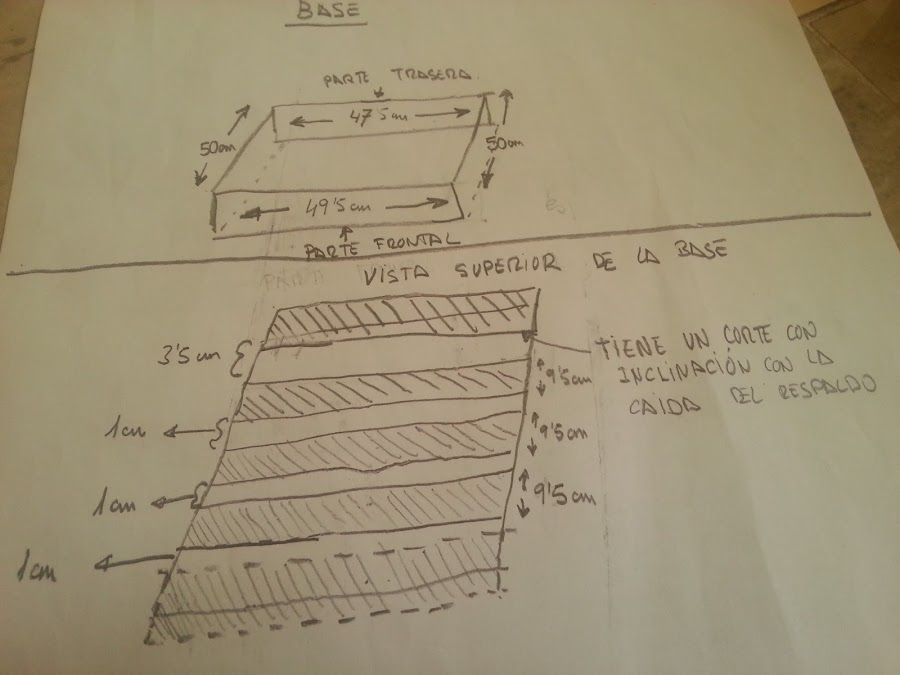 BASE
PARTE TRASERA
47'5cm
50cm
50cm
49'5cm
PARTE FRONTAL
VISTA SUPERIOR DE LA BASE
3'5cm
TIENE UN CORTE CON
INCLINACIÓN CON LA
CAIDA DEL RESPALDO
9'5cm
1cm
9'5cm
1cm
9'5cm
1cm